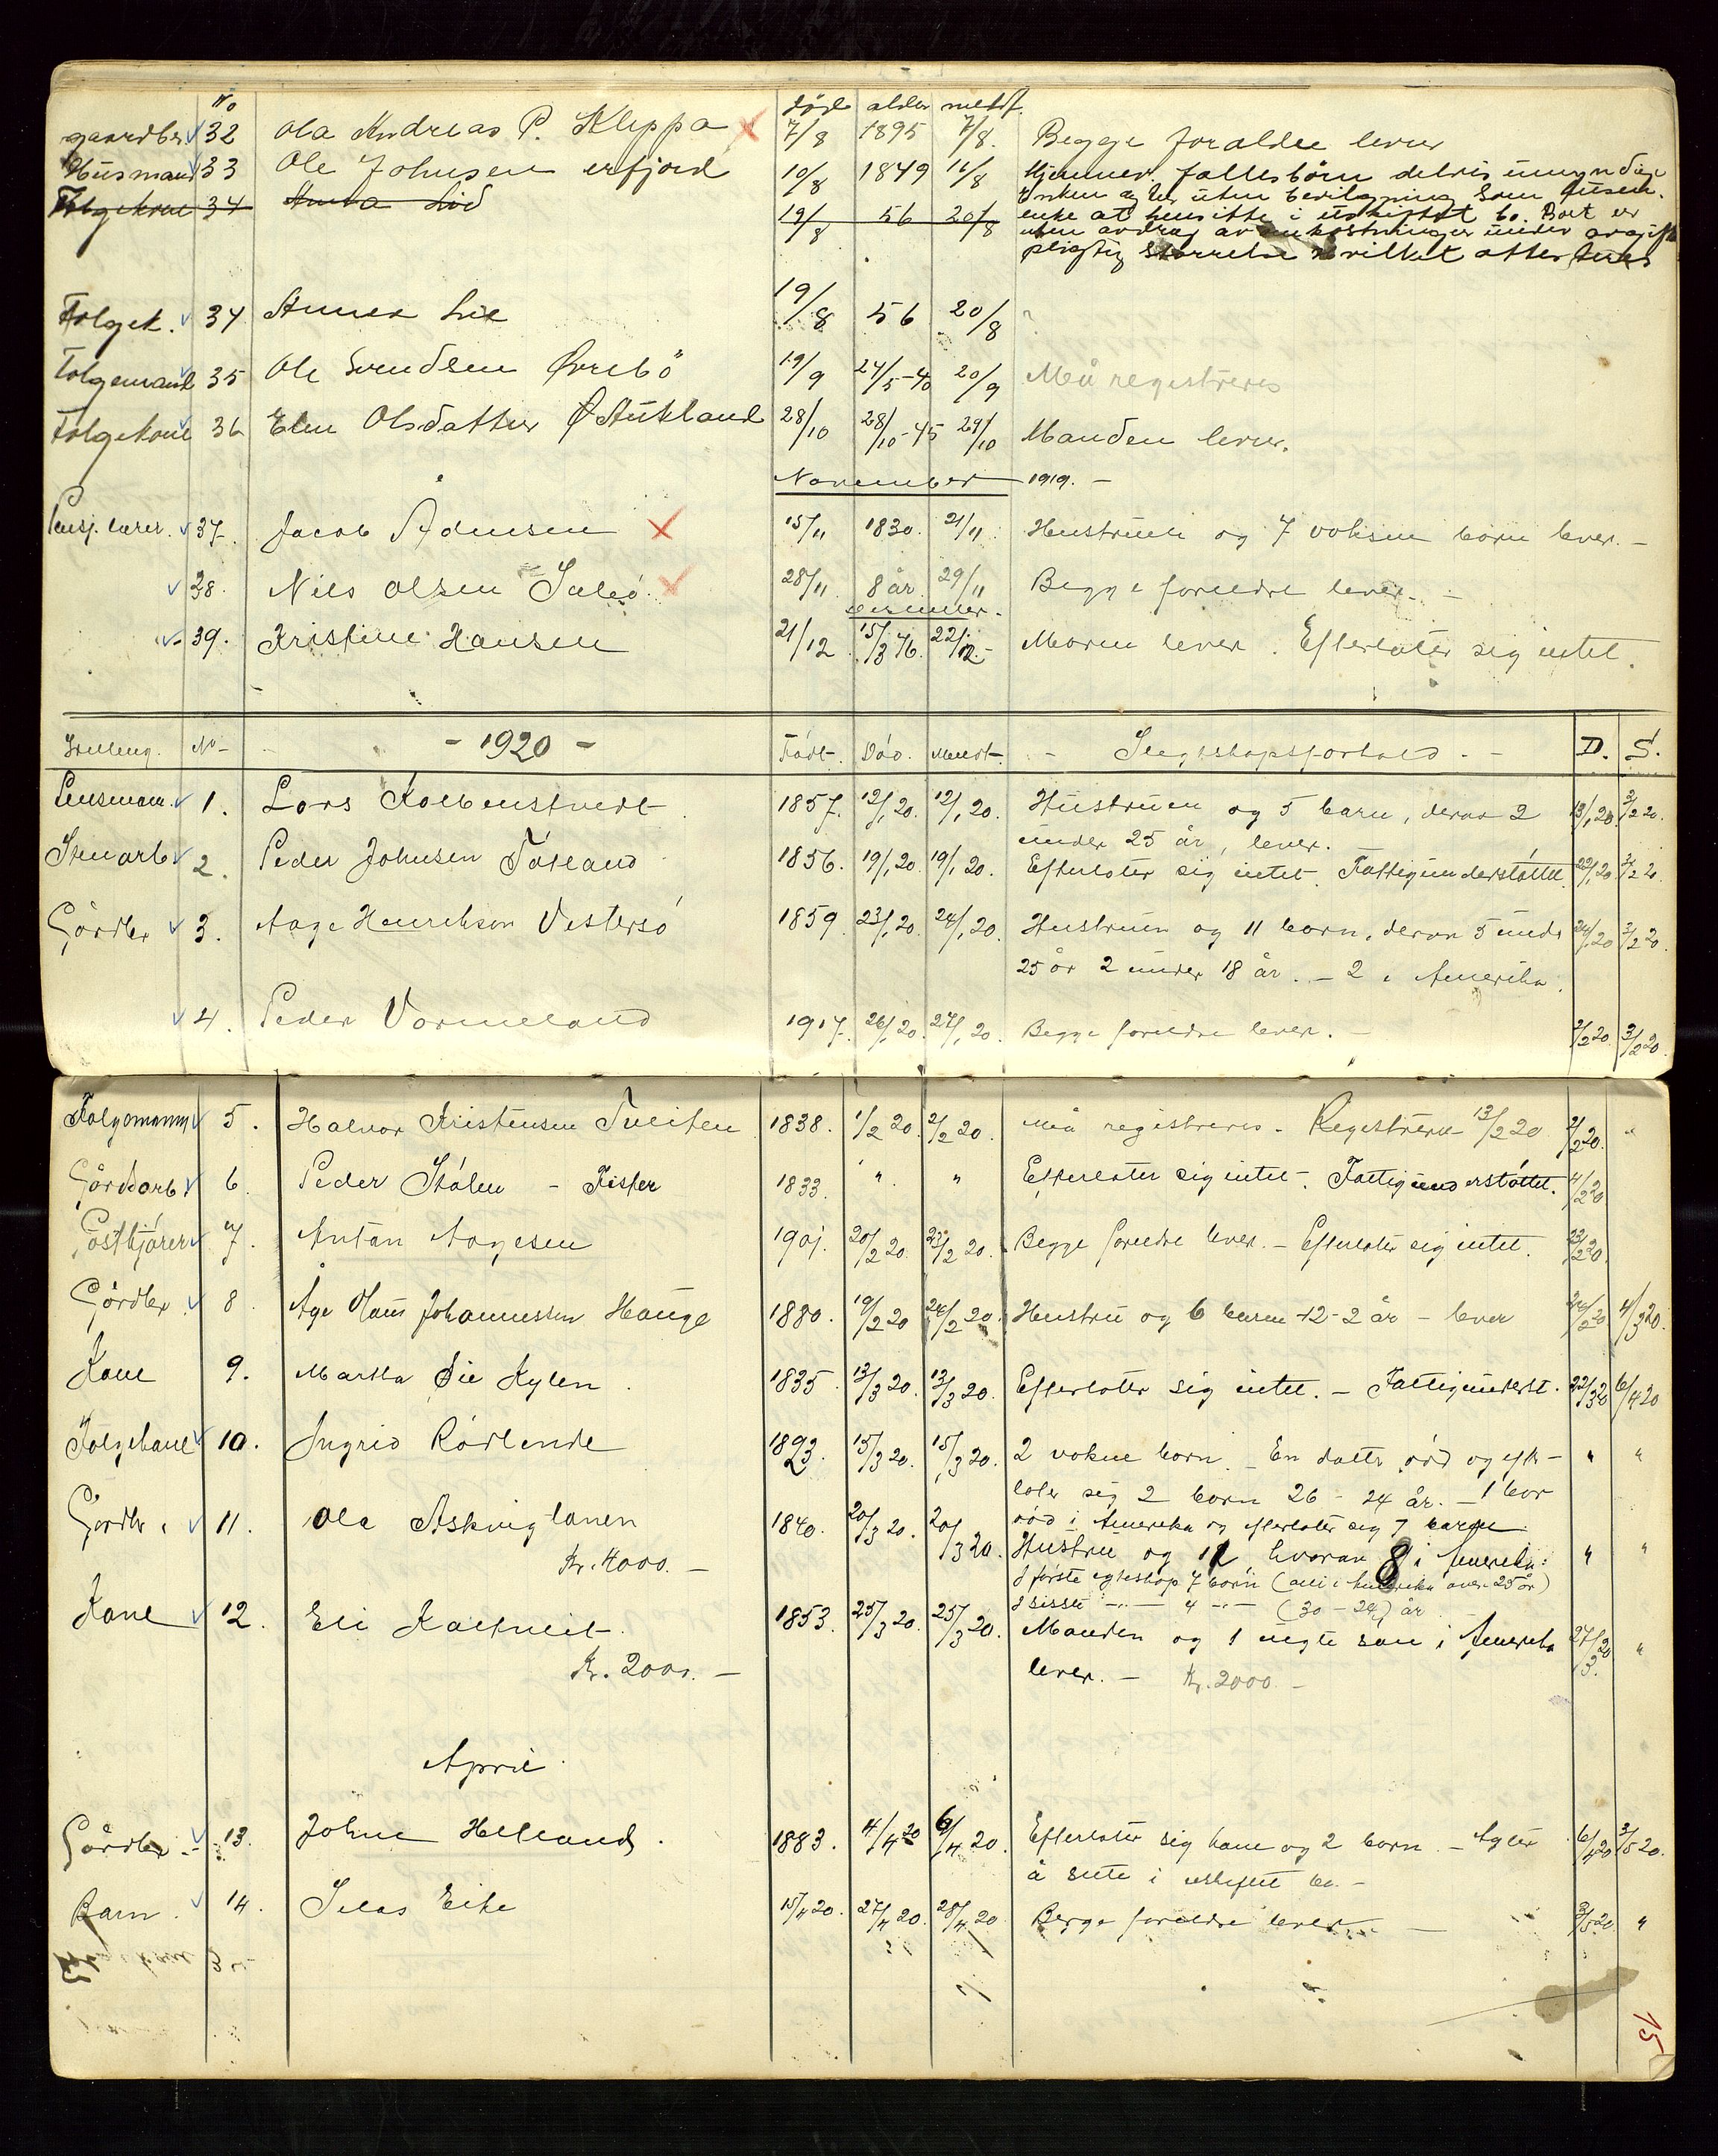 No død alder meldt.
gaardbr. 32 Ola Andreas P. Kleppa 7/8 1895 7/8. Begge foraldre lever
Husmand 33 Ole Johnsen erfjord 10/8 1849 11/8 Hjemmev. fallesbörn delvis umyndige
Enken agter uten bevilgning som
Folgekone 34 Anna Lid 19/8 56 20/8 enke at hensitte i uskiftet bo. Boet er
uten avdrag av omkostninger under avgifts
pligtig störrelse hvilket attesteres
Folgek. 34 Anna Lie 19/8 56 20/8
Folgemand 35 Ole Svendsen Övrebö 19/9 24/5-40 20/9 Må registreres
Folgekone 36 Elen Olsdatter Ö Stukland 28/10 28/10-45 29/10 Manden lever.
November 1919. -
Pensj. lærer. 37. Jacob Admsen 15/11 1830. 21/11 Hustruen og 7 voksne born lever. -
38. Nils Olsen Salsö. 28/11 8 år 29/11 Begge foreldre lever. -
Desember.
39. Kristine Hansen 21/12 15/3 76. 22/12. - Moren lever. Efterlater sig intet.
Stilling. No - - 1920 - Födt. Död. Meldt. - Slegtskapsforhold. - D. S.
Lensmann. 1. Lars Kolbenstvedt 1857. 12/1 20. 12/1 20. Hustruen og 5 barn, derav 2 13/1 20. 3/2 20.
under 25 år, lever.
Stenarb. 2. Peder Johnsen Tótland 1856. 19/1 20. 19/1 20. Efterlater sig intet. Fattigunderstöttet. 22/1 20. 3/2 20.
Gårdbr 3. Aage Henrikson Vestersö 1859. 23/1 20. 24/1 20. Hustruen og 11 born, derav 5 under 24/1 20 3/2 20.
25 år 2 under 18 år. - 2 i Amerika.
4. Peder Vormeland 1917. 26/1 20. 27/1 20. Begge foreldre lever. - 2/2 20. 3/2 20.
Folgemann 5. Halvor Kristensen Tveiten 1838. 1/2 20. 2/2 20. Må registreres. Registreret 13/2 20 2/2 20. "
Gårdsarb. 6. Peder Stölen - Fister 1833. " " Efterlater sig intet. Fattigunderstöttet. 4/2 20
Postkjörer 7. Anton Aagesen 1901. 20/2 20. 23/2 20. Begge foreldre lever. - Efterlater sig intet. 23/2 20.
Gårdbr. 8. Åge Olaus Johannessen Hauge 1880. 19/2 20 24/2 20. Hustru og 6 barn - 12 - 2 år - lever 24/2 20 4/3 20.
Kone 9. Martha Lie Hylen. 1835. 13/3 20. 13/3 20. Efterlater sig intet. - Fattigunderst. 22/3 20 6/4 20
Folgekone 10. Ingrid Rödlende 15/3 20. 15/3 20. 2 voksne born. - En datter död og efter-
later sig 2 born 26 - 24 år. - 1 bor
Gårdbr. 11. Ola Askvig lonen 1840. 20/3 20. 20/3 20. död i Amerika og efterlater sig 7 barn.
Hustru og 11 hvorav 8 i Amerika.
Kr. 4000. - I förste egteskap 7 born (alle i Amerika over 25 år)
I sisste - " - 4 - " - (30 - 24) år
Kone 12. Eli Kaltveit 1853. 25/3 20. 25/3 20. Manden og 1 sön i Amerika 27/3 20 "
Kr. 2000. - lever. - Kr. 2000. -
April.
Gårdbr. - 13. Johan Helland. 1883. 4/4 20 6/4 20. Efterlater sig kone og 2 born. - Agter 6/4 20 3/5 20.
å sitte i uskiftet bo. -
Barn. 14. Silas Eike 15/4 20. 27/4 20. 28/4 20 Begge foreldre lever. - 3/5 20. "
15